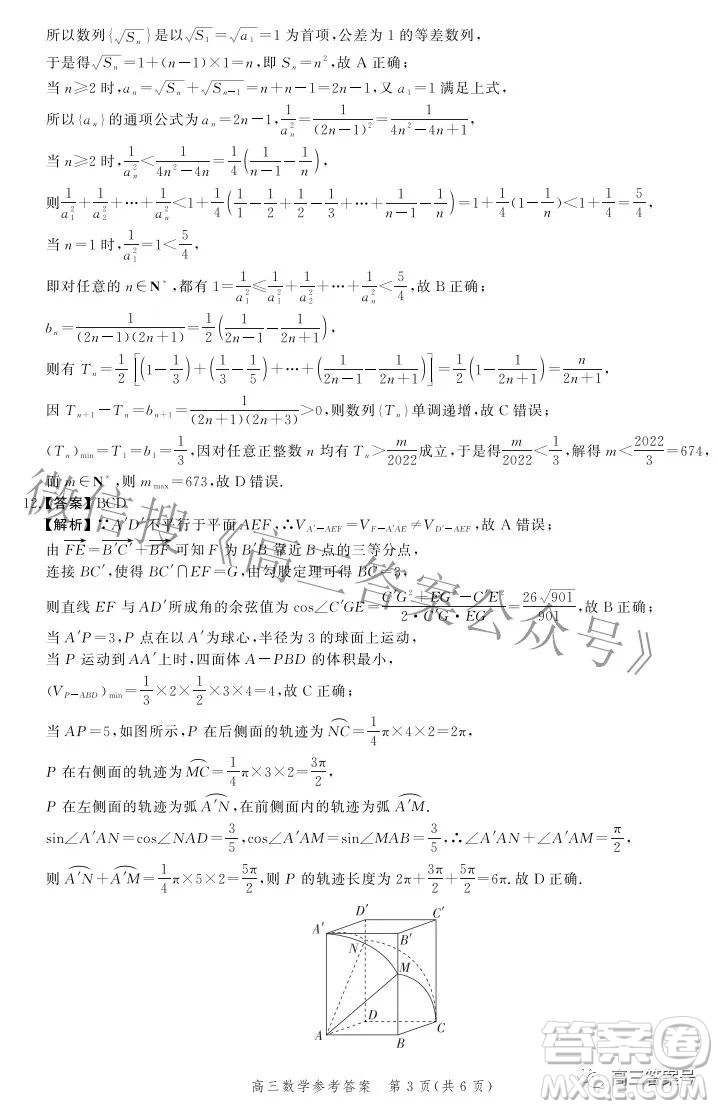 所以数列{√Sₙ}是以√S₁=√a₁=1为首项,公差为1的等差数列,
于是得√Sₙ=1+(n-1)×1=n,即 Sₙ=n²,故 A 正确;
当 n≥2 时,aₙ=√Sₙ+√Sₙ₋₁=n+n-1=2n-1,又 a₁=1 满足上式,
所以{aₙ}的通项公式为 aₙ=2n-1,1/aₙ²=1/(2n-1)²=1/(4n²-4n+1),
当 n≥2 时,1/aₙ²<1/(4n²-4n)=1/4(1/(n-1)-1/n),
则1/a₁²+1/a₂²+…+1/aₙ²<1+1/4(1/1-1/2+1/2-1/3+…+1/(n-1)-1/n)=1+1/4(1-1/n)<1+1/4=5/4,
当 n=1 时,1/a₁²=1<5/4,
即对任意的 n∈N*,都有 1=1/a₁²≤1/a₁²+1/a₂²+…+1/aₙ²<5/4,故 B 正确;
bₙ=1/((2n-1)(2n+1))=1/2(1/(2n-1)-1/(2n+1)),
则有 Tₙ=1/2[(1-1/3)+(1/3-1/5)+…+(1/(2n-1)-1/(2n+1))]=1/2(1-1/(2n+1))=n/(2n+1),
因 Tₙ₊₁-Tₙ=bₙ₊₁=1/((2n+1)(2n+3))>0,则数列{Tₙ}单调递增,故 C 错误;
(Tₙ)min=T₁=b₁=1/3,因对任意正整数 n 均有 Tₙ>m/2022成立,于是得m/2022<1/3,解得 m<2022/3=674,
而 m∈N*,则 mmax=673,故 D 错误.
12.【答案】BCD
【解析】∵A′D′不平行于平面AEF,∴V_A′-AEF=V_F-A′AE≠V_D′-AEF,故 A 错误;
由 FE=B′C′+BF 可知 F 为 B′B 靠近 B 点的三等分点,
连接 BC′,使得 BC′∩EF=G,由勾股定理可得 BC′=
则直线 EF 与 AD′所成角的余弦值为 cos∠C′GE=(C′G²+EG²-C′E²)/(2·C′G·EG)=26√901/901,故 B 正确;
当 A′P=3,P 点在以 A′为球心,半径为 3 的球面上运动,
当 P 运动到 AA′上时,四面体 A-PBD 的体积最小,
(V_P-ABD)min=1/3×2×1/2×3×4=4,故 C 正确;
当 AP=5,如图所示,P 在后侧面的轨迹为 NC=1/4π×4×2=2π,
P 在右侧面的轨迹为 MC=1/4π×3×2=3π/2,
P 在左侧面的轨迹为弧 A′N,在前侧面内的轨迹为弧 A′M.
sin∠A′AN=cos∠NAD=3/5,cos∠A′AM=sin∠MAB=3/5,∴∠A′AN+∠A′AM=π/2,
则 A′N+A′M=1/4π×5×2=5π/2,则 P 的轨迹长度为 2π+3π/2+5π/2=6π.故 D 正确.
D′ C′
A′ B′
N M
D C
A B
微信搜《高三答案公众号》
答案圈
高三答案号
MXQE.COM
高三数学参考答案 第 3 页(共 6 页)